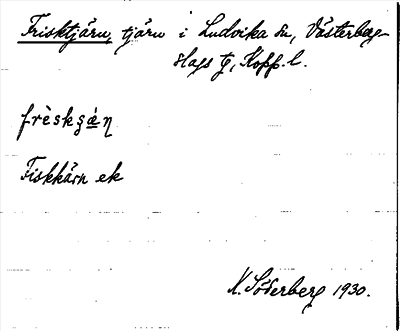 Frisktjärn, tjärn i Ludvika sn, Västerbergs-
slags tg, Kopp. l.
frèskʂæ̀ɳ
Fiskkärn ek
N. Söderberg 1930.